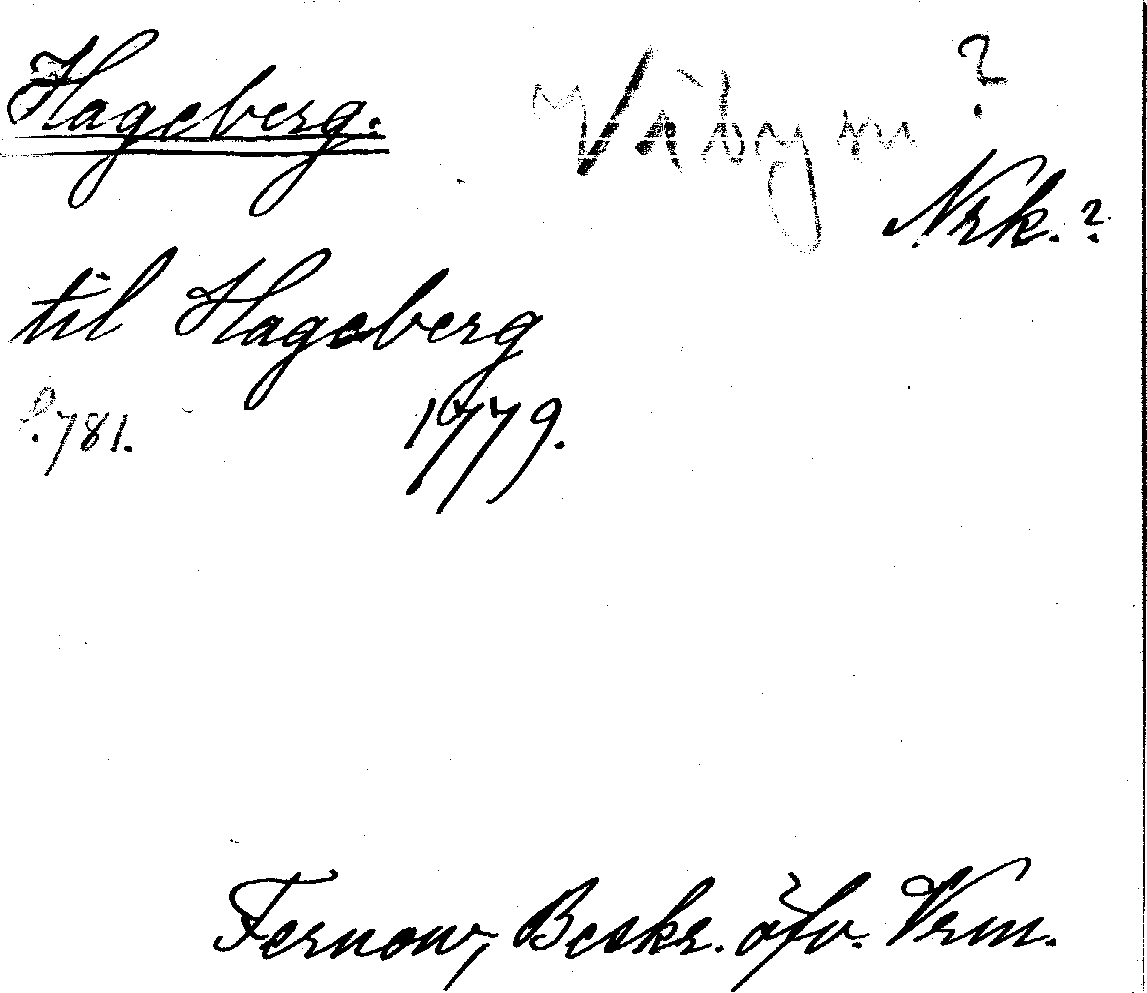 Hageberg. Väby m ?
Nrk. ?
til Hageberg
s. 781. 1779.
Fernow, Beskr. öfv. Vrm.